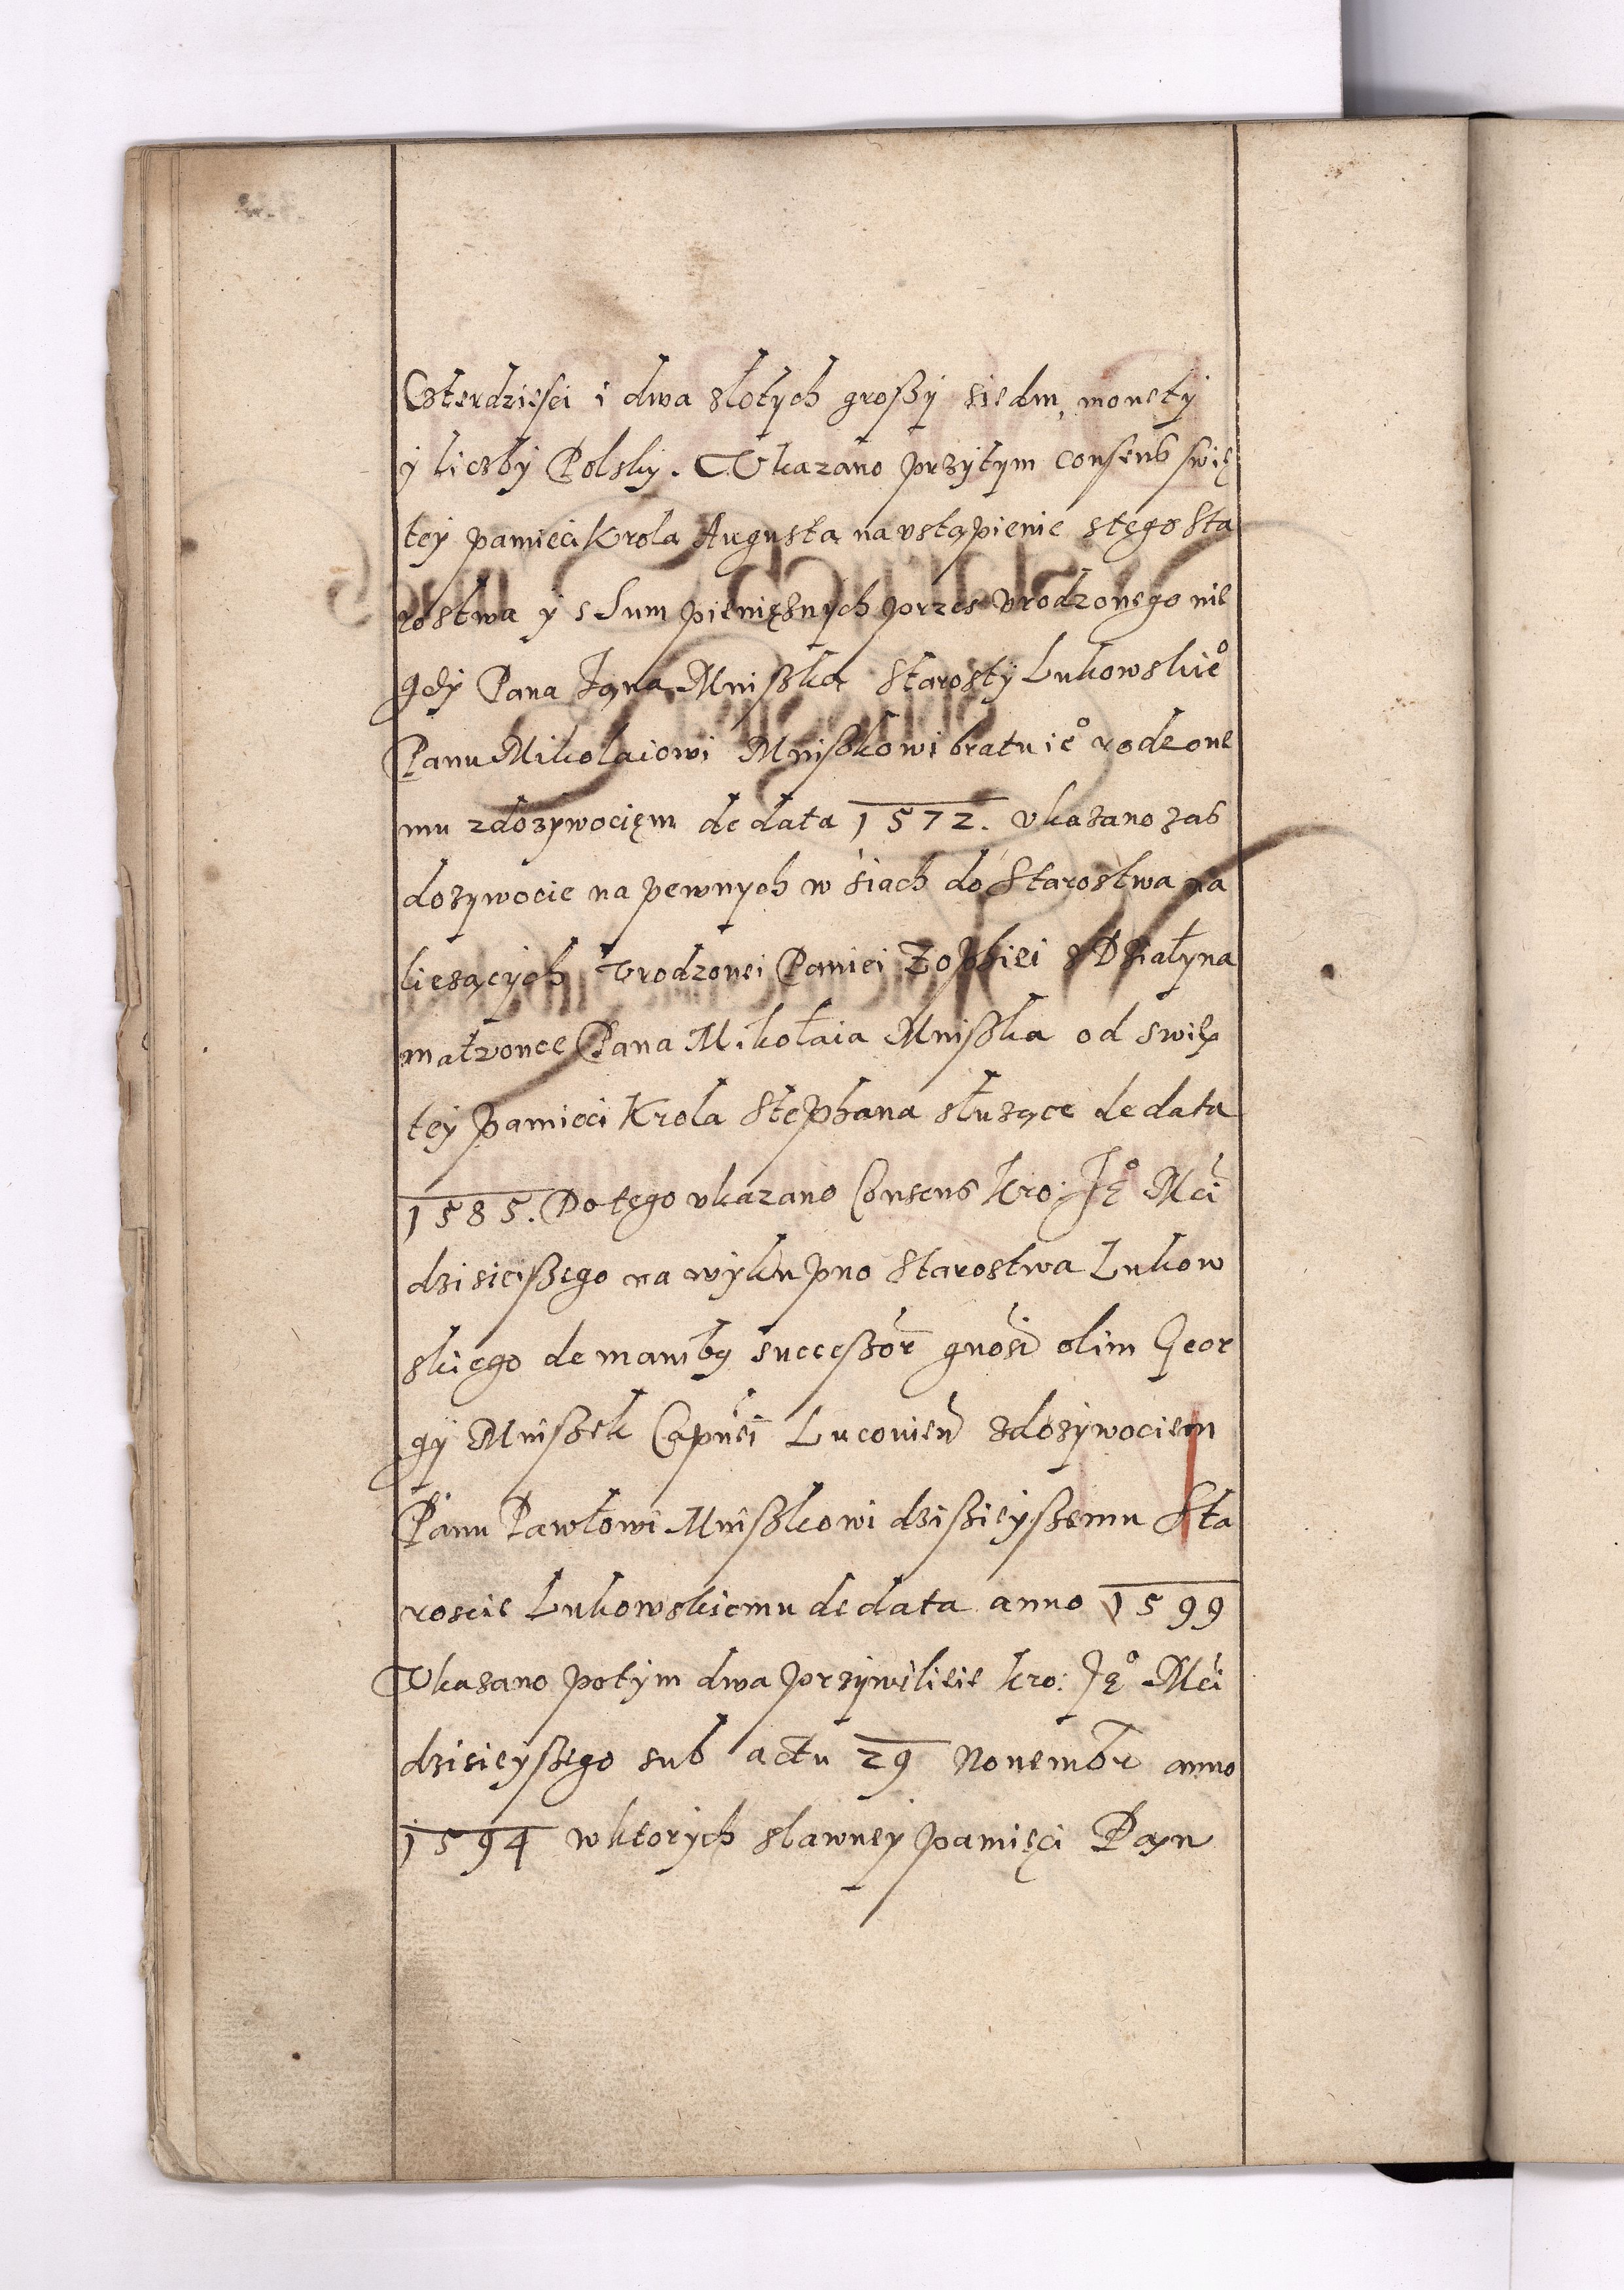 Czterdziesci i dwa złotych groszy siedm, monety
y liczby Polsky. Vkazano przytym consens swię
tey pamieci Krola Augusta na vstąpienie stego sta
rostwa y s Sum pieniężnych przes vrodzonego nie
gdy Pana Jana Mniszka Starosty Lukowskieº
Panu Mikolaiowi Mniszkowi bratu ieº rodzone
mu zdozywociem de data 1572. vkazano zas
dozywocie na pewnych w siach do Starostwa na
liezących Vrodzonei Paniei Zophiei z Działyna
małzonce Pana Mikołaia Mniszka od swię
tey pamieci Krola Stephana słuzące de data
1585. Do tego vkazano Consens Kro: Jeº Mci
dzisieiszego na wykupno Starostwa Lukow
skiego de manibg successor gnosi olim Geor
gy Mniszek Capnei Lucouien zdozywociem
Panu Pawłowi Mniszkowi dzisieyszemu Sta
roscie Lukowskiemu de data anno 1599
Vkazano potym dwa przywilieie kro: Jeº Mci
dzisieyszego sub actu 29 Nouembr anno
1594 wktorych sławney pamięci Pan